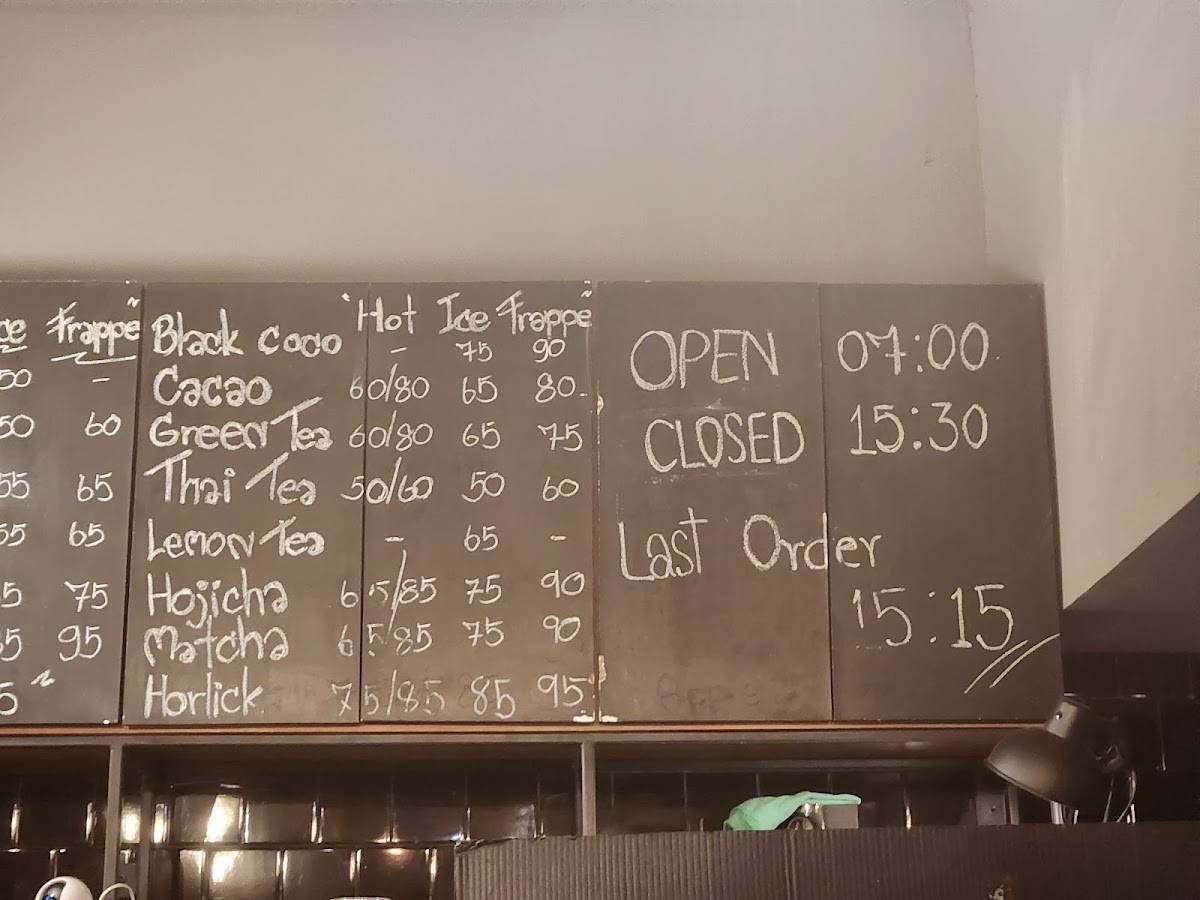 ce Frappe
50 -
50 60
55 65
55 65
5 75
5 95
5
Hot Ice Frappe
Black Coco - 75 90
Cacao 60/80 65 80
Green Tea 60/80 65 75
Thai Tea 50/60 50 60
Lemon Tea - 65 -
Hojicha 65/85 75 90
Matcha 65/85 75 90
Horlick 75/85 85 95
OPEN 07:00
CLOSED 15:30
Last Order
15:15